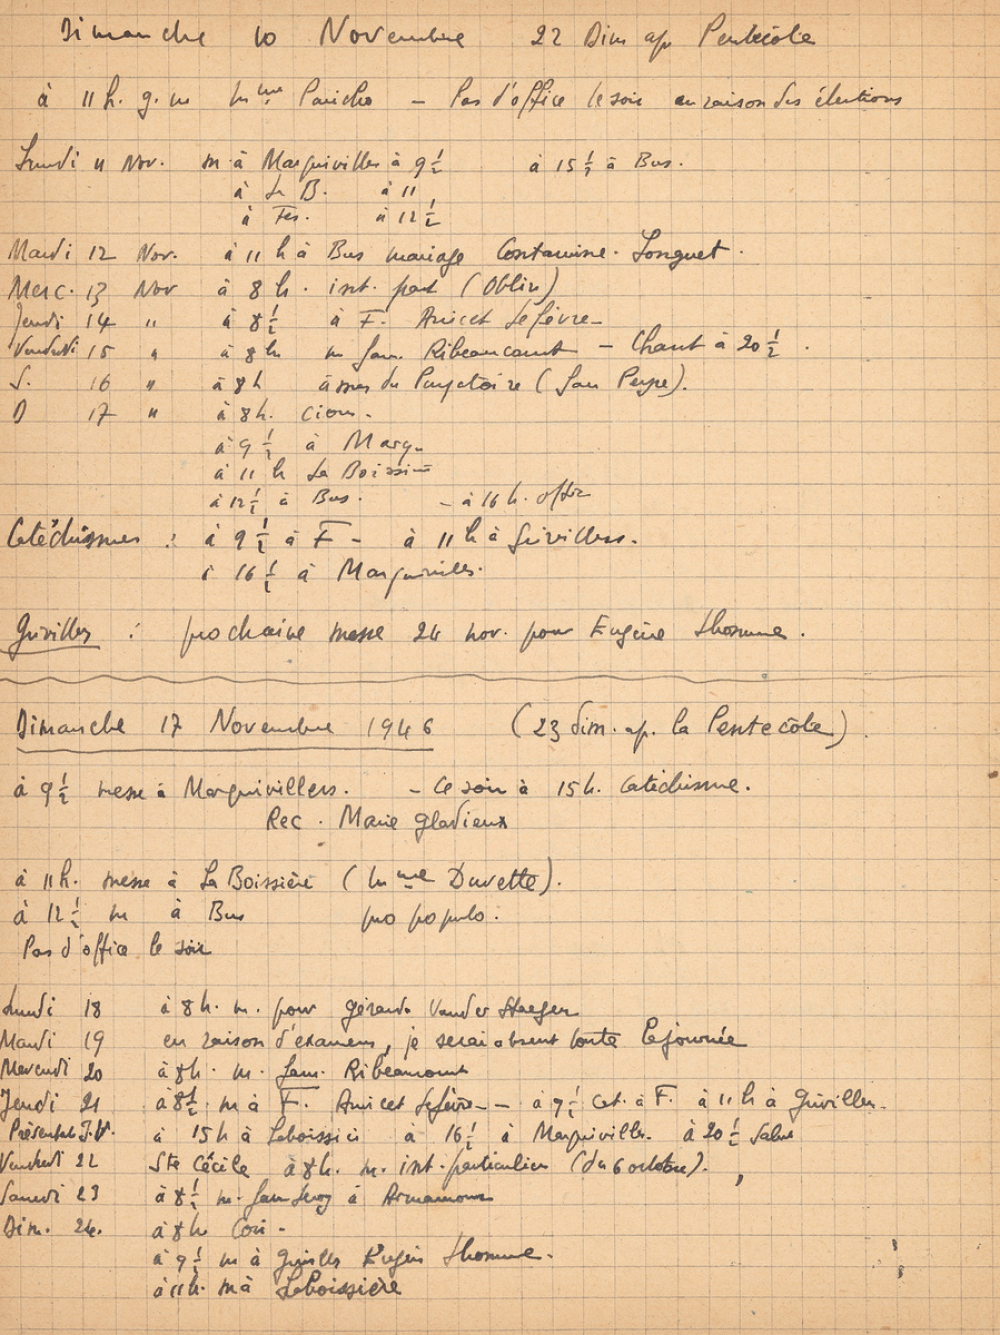 Dimanche 10 Novembre 22 Dim ap Pentecôte
à 11 h. g. m Mme - Pas d'office le soir en raison des élections
Lundi 11 Nov. m. à Marquivillers à 9 ½ à 15 ½ à Bus.
à La B. à 11
à Fes. à 12 ½
Mardi 12 Nov. à 11 h à Bus mariage Contamine - Longuet.
Merc. 13 Nov à 8 h. int. part (Oblin)
Jeudi 14 " à 8 ½ à F. Anicet Lefèvre
Vendredi 15 " à 8 h m fam. Ribeaucourt - Chant à 20 ½.
S. 16 " à 8 h âmes du Purgatoire ( ).
D 17 " à 8 h. Com.
à 9 ½ à Marq.
à 11 h La Boissière
à 12 ½ à Bus. - à 16 h. office
Catéchismes : à 9 ½ à F - à 11 h à Grivillers.
à 16 ½ à Marquivillers.
Grivillers : prochaine messe 24 nov. pour Eugène Lhomme.
Dimanche 17 Novembre 1946 (23 dim. ap. la Pentecôte)
à 9 ½ messe à Marquivillers. - Ce soir à 15 h. Catéchisme.
Rec. Marie Gladieux
à 11 h. messe à La Boissière (Mme Duvette).
à 12 ½ m à Bus pro populo.
Pas d'office le soir
Lundi 18 à 8 h. m. pour Gérard Vander
Mardi 19 en raison d'examens, je serai absent toute la journée
Mercredi 20 à 8 h. m. fam. Ribeaucourt
Jeudi 21 à 8 ½ m à F. Anicet Lefèvre - à 9 ½ cat. à F. à 11 h à Grivillers.
Présentat. T.V. à 15 h à Laboissière à 16 ½ à Marquivillers. à 20 ½ Salut
Vendredi 22 Ste Cécile à 8 h. m. int. particulière (du 6 octobre).
Samedi 23 à 8 ½ m. fam à
Dim. 24. à 8 h Com.
à 9 ½ m à Grivillers Eugène Lhomme.
à 11 h. m à Laboissière